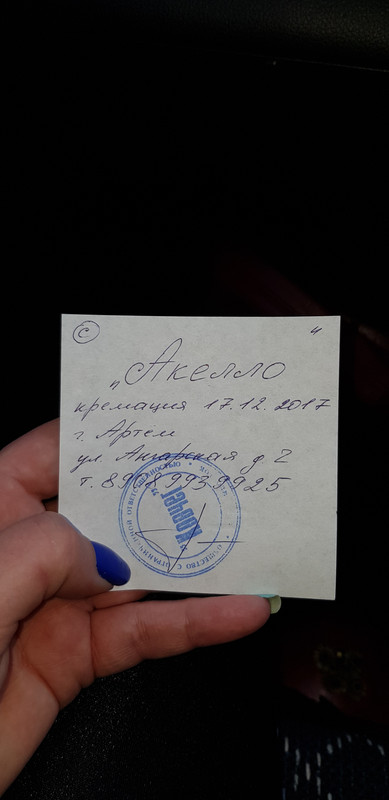 с
ч
"Акелло
кремация 17.12.2017
г. Артем
ул. Ангарская д 2
т. 8968 993 9925
ОБЩЕСТВО С ОГРАНИЧЕННОЙ ОТВЕТСТВЕННОСТЬЮ
"КОВЧЕГ"